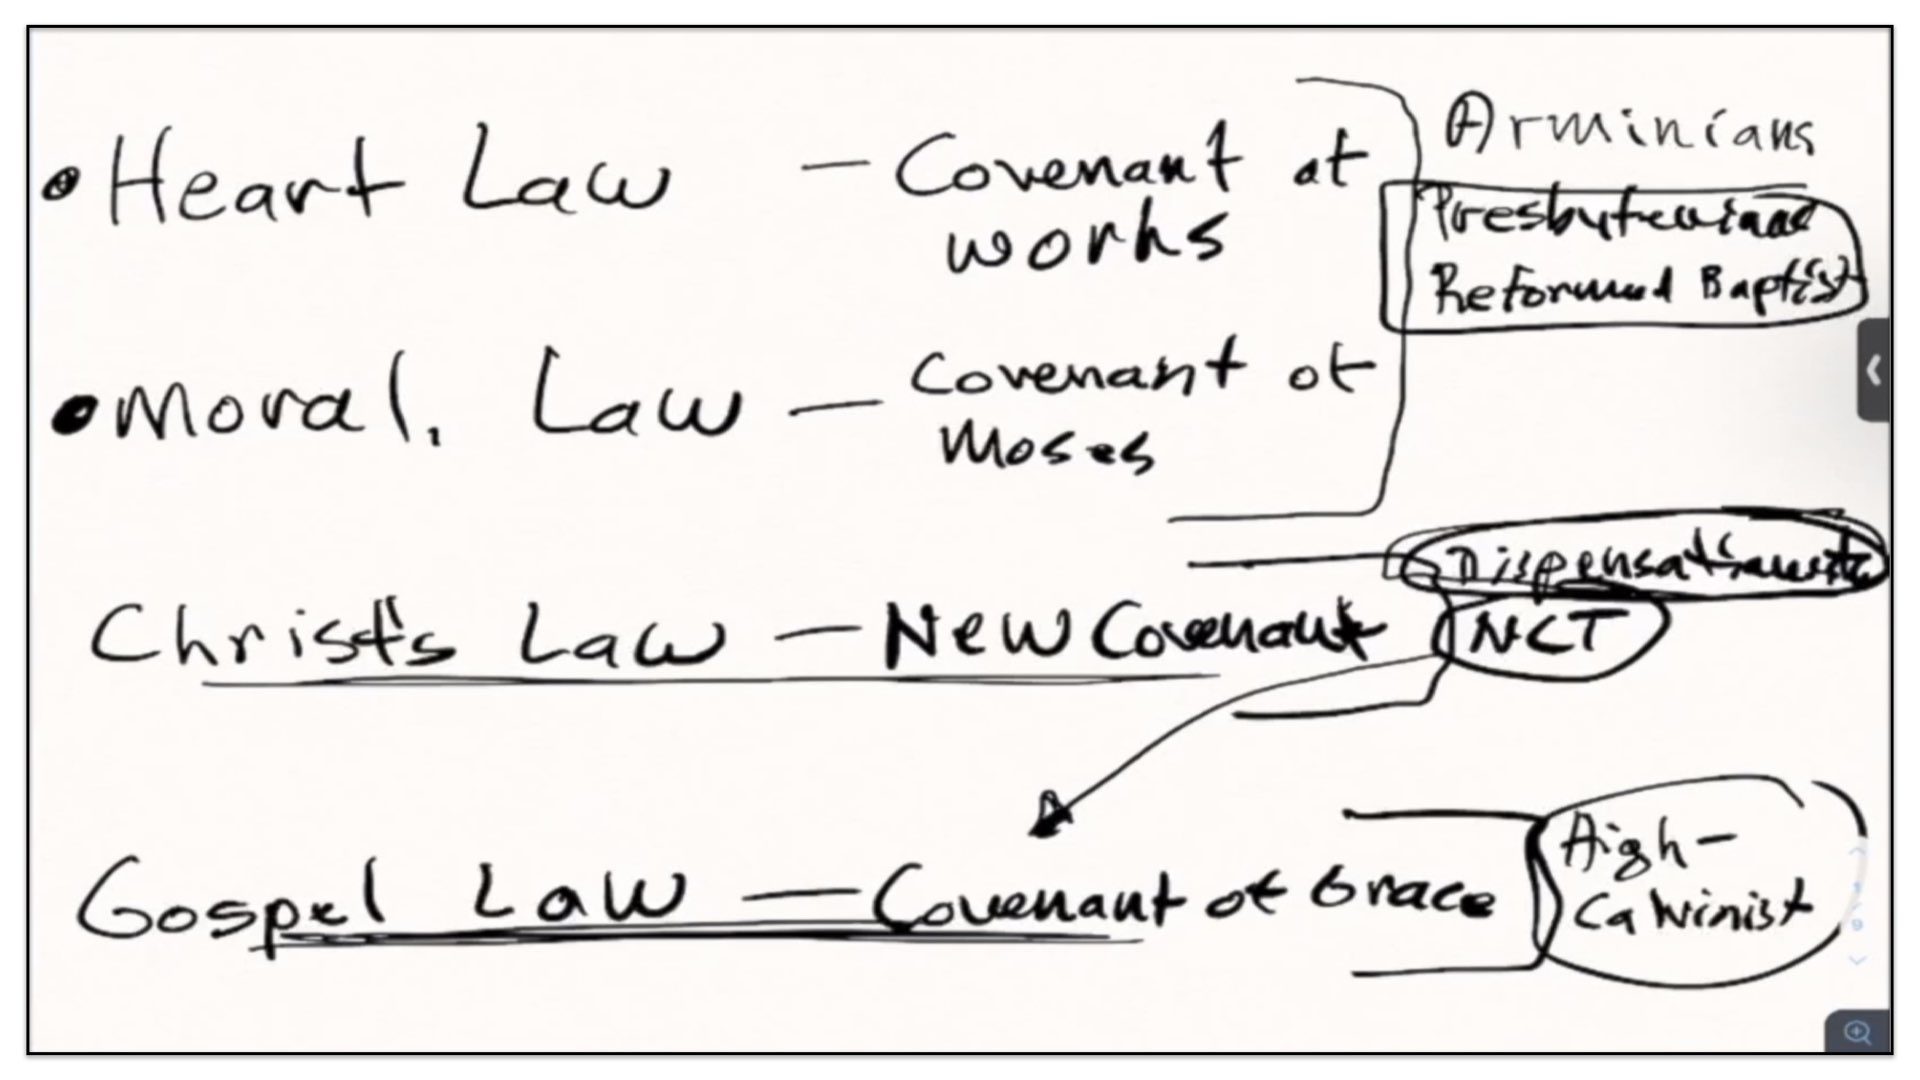 • Heart Law — Covenant of
works
Arminians
Presbyterians
Reformed Baptist
• Moral. Law — Covenant of
Moses
Dispensationalists
Christ's Law — New Covenant
NCT
Gospel Law — Covenant of Grace
High-
Calvinist